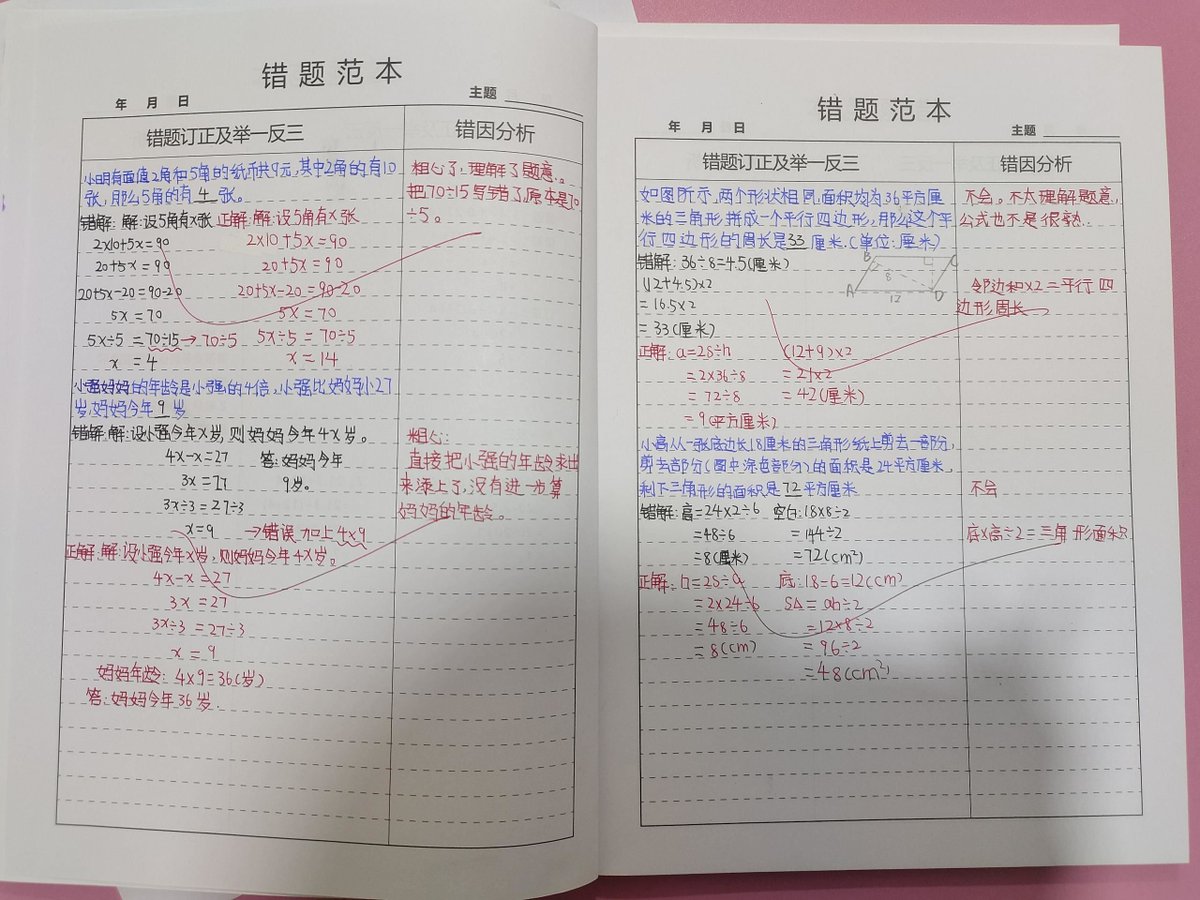 错题范本
年 月 日
主题
错题订正及举一反三
错因分析
小明有面值2角和5角的纸币共9元,其中2角的有10
张,那么5角的有 4 张。
错解:解:设5角有x张
2×10+5x=90
20+5x=90
20+5x-20=90-20
5x=70
5x÷5=70÷15→70÷5
x=4
正解:解:设5角有x张
2×10+5x=90
20+5x=90
20+5x-20=90-20
5x=70
5x÷5=70÷5
x=14
粗心了.理解了题意。
把70÷15写错了,原本是70
÷5。
小强妈妈的年龄是小强的4倍,小强比妈妈小27
岁,妈妈今年 9 岁
错解:解:设小强今年x岁,则妈妈今年4x岁。
4x-x=27
3x=27
3x÷3=27÷3
x=9
→错误 加上4×9
答:妈妈今年
9岁。
正解:解:设小强今年x岁,则妈妈今年4x岁。
4x-x=27
3x=27
3x÷3=27÷3
x=9
妈妈年龄:4×9=36(岁)
答:妈妈今年36岁.
粗心:
直接把小强的年龄求出
来添上了,没有进一步算
妈妈的年龄。
错题范本
年 月 日
主题
错题订正及举一反三
错因分析
如图所示,两个形状相同,面积均为36平方厘
米的三角形,拼成一个平行四边形,那么这个平
行四边形的周长是 33 厘米.(单位:厘米)
错解:36÷8=4.5(厘米)
(12+4.5)×2
=16.5×2
=33(厘米)
B
C
8
A
12
D
正解:a=2S÷h
=2×36÷8
=72÷8
=9(平方厘米)
(12+9)×2
=21×2
=42(厘米)
不会。不太理解题意,
公式也不是很熟.
邻边和×2=平行四
边形周长
小高从一张底边长18厘米的三角形纸上剪去一部分,
剪去部分(图中涂色部分)的面积是24平方厘米,
剩下三角形的面积是 72 平方厘米
错解:高=24×2÷6
=48÷6
=8(厘米)
空白:18×8÷2
=144÷2
=72(cm²)
正解:h=2S÷a
=2×24÷6
=48÷6
=8(cm)
底:18-6=12(cm)
S△=ah÷2
=12×8÷2
=96÷2
=48(cm²)
不会
底×高÷2=三角形面积